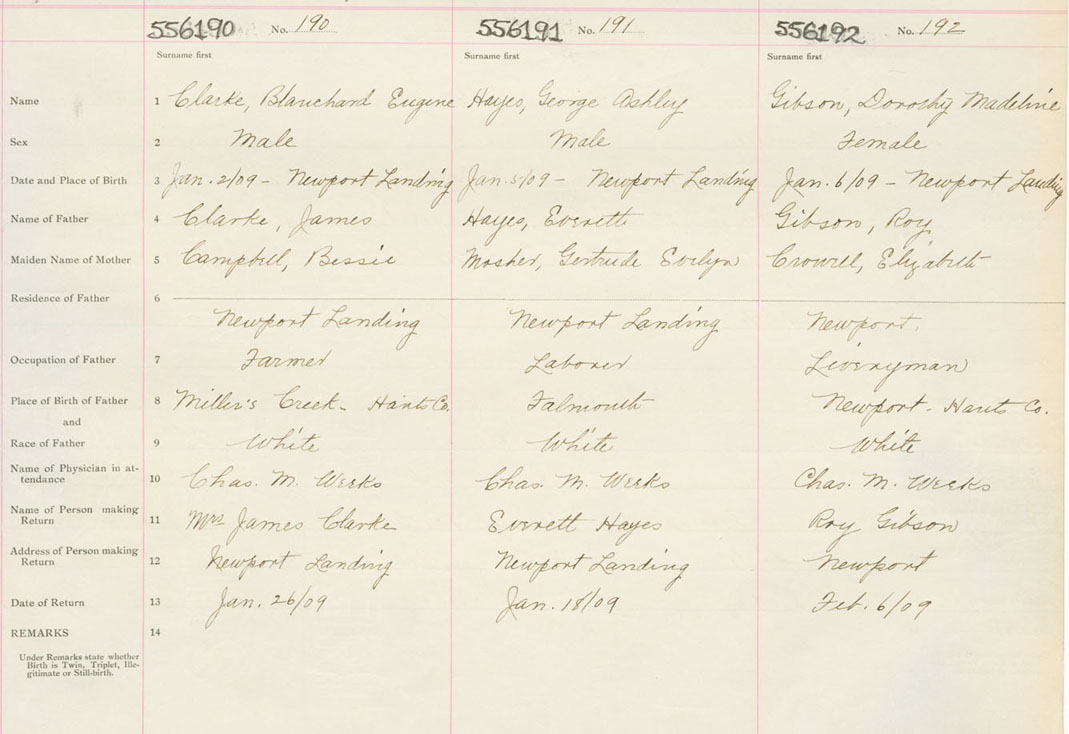 556190 No. 190 556191 No. 191 556192 No. 192
Surname first Surname first Surname first
Name 1 Clarke, Blanchard Eugene Hayes, George Ashley Gibson, Dorothy Madeline
Sex 2 Male Male Female
Date and Place of Birth 3 Jan. 2/09 - Newport Landing Jan. 5/09 - Newport Landing Jan. 6/09 - Newport Landing
Name of Father 4 Clarke, James Hayes, Everett Gibson, Roy
Maiden Name of Mother 5 Campbell, Bessie Mosher, Gertrude Evelyn Crowell, Elizabeth
Residence of Father 6
Newport Landing Newport Landing Newport.
Occupation of Father 7 Farmer Laborer Liveryman
Place of Birth of Father 8 Miller's Creek - Hants Co. Falmouth Newport - Hants Co.
and
Race of Father 9 White White White
Name of Physician in at-
tendance 10 Chas. M. Weeks Chas. M. Weeks Chas. M. Weeks
Name of Person making
Return 11 Mrs James Clarke Everett Hayes Roy Gibson
Address of Person making
Return 12 Newport Landing Newport Landing Newport
Date of Return 13 Jan. 26/09 Jan. 18/09 Feb. 6/09
REMARKS 14
Under Remarks state whether
Birth is Twin, Triplet, Ille-
gitimate or Still-birth.